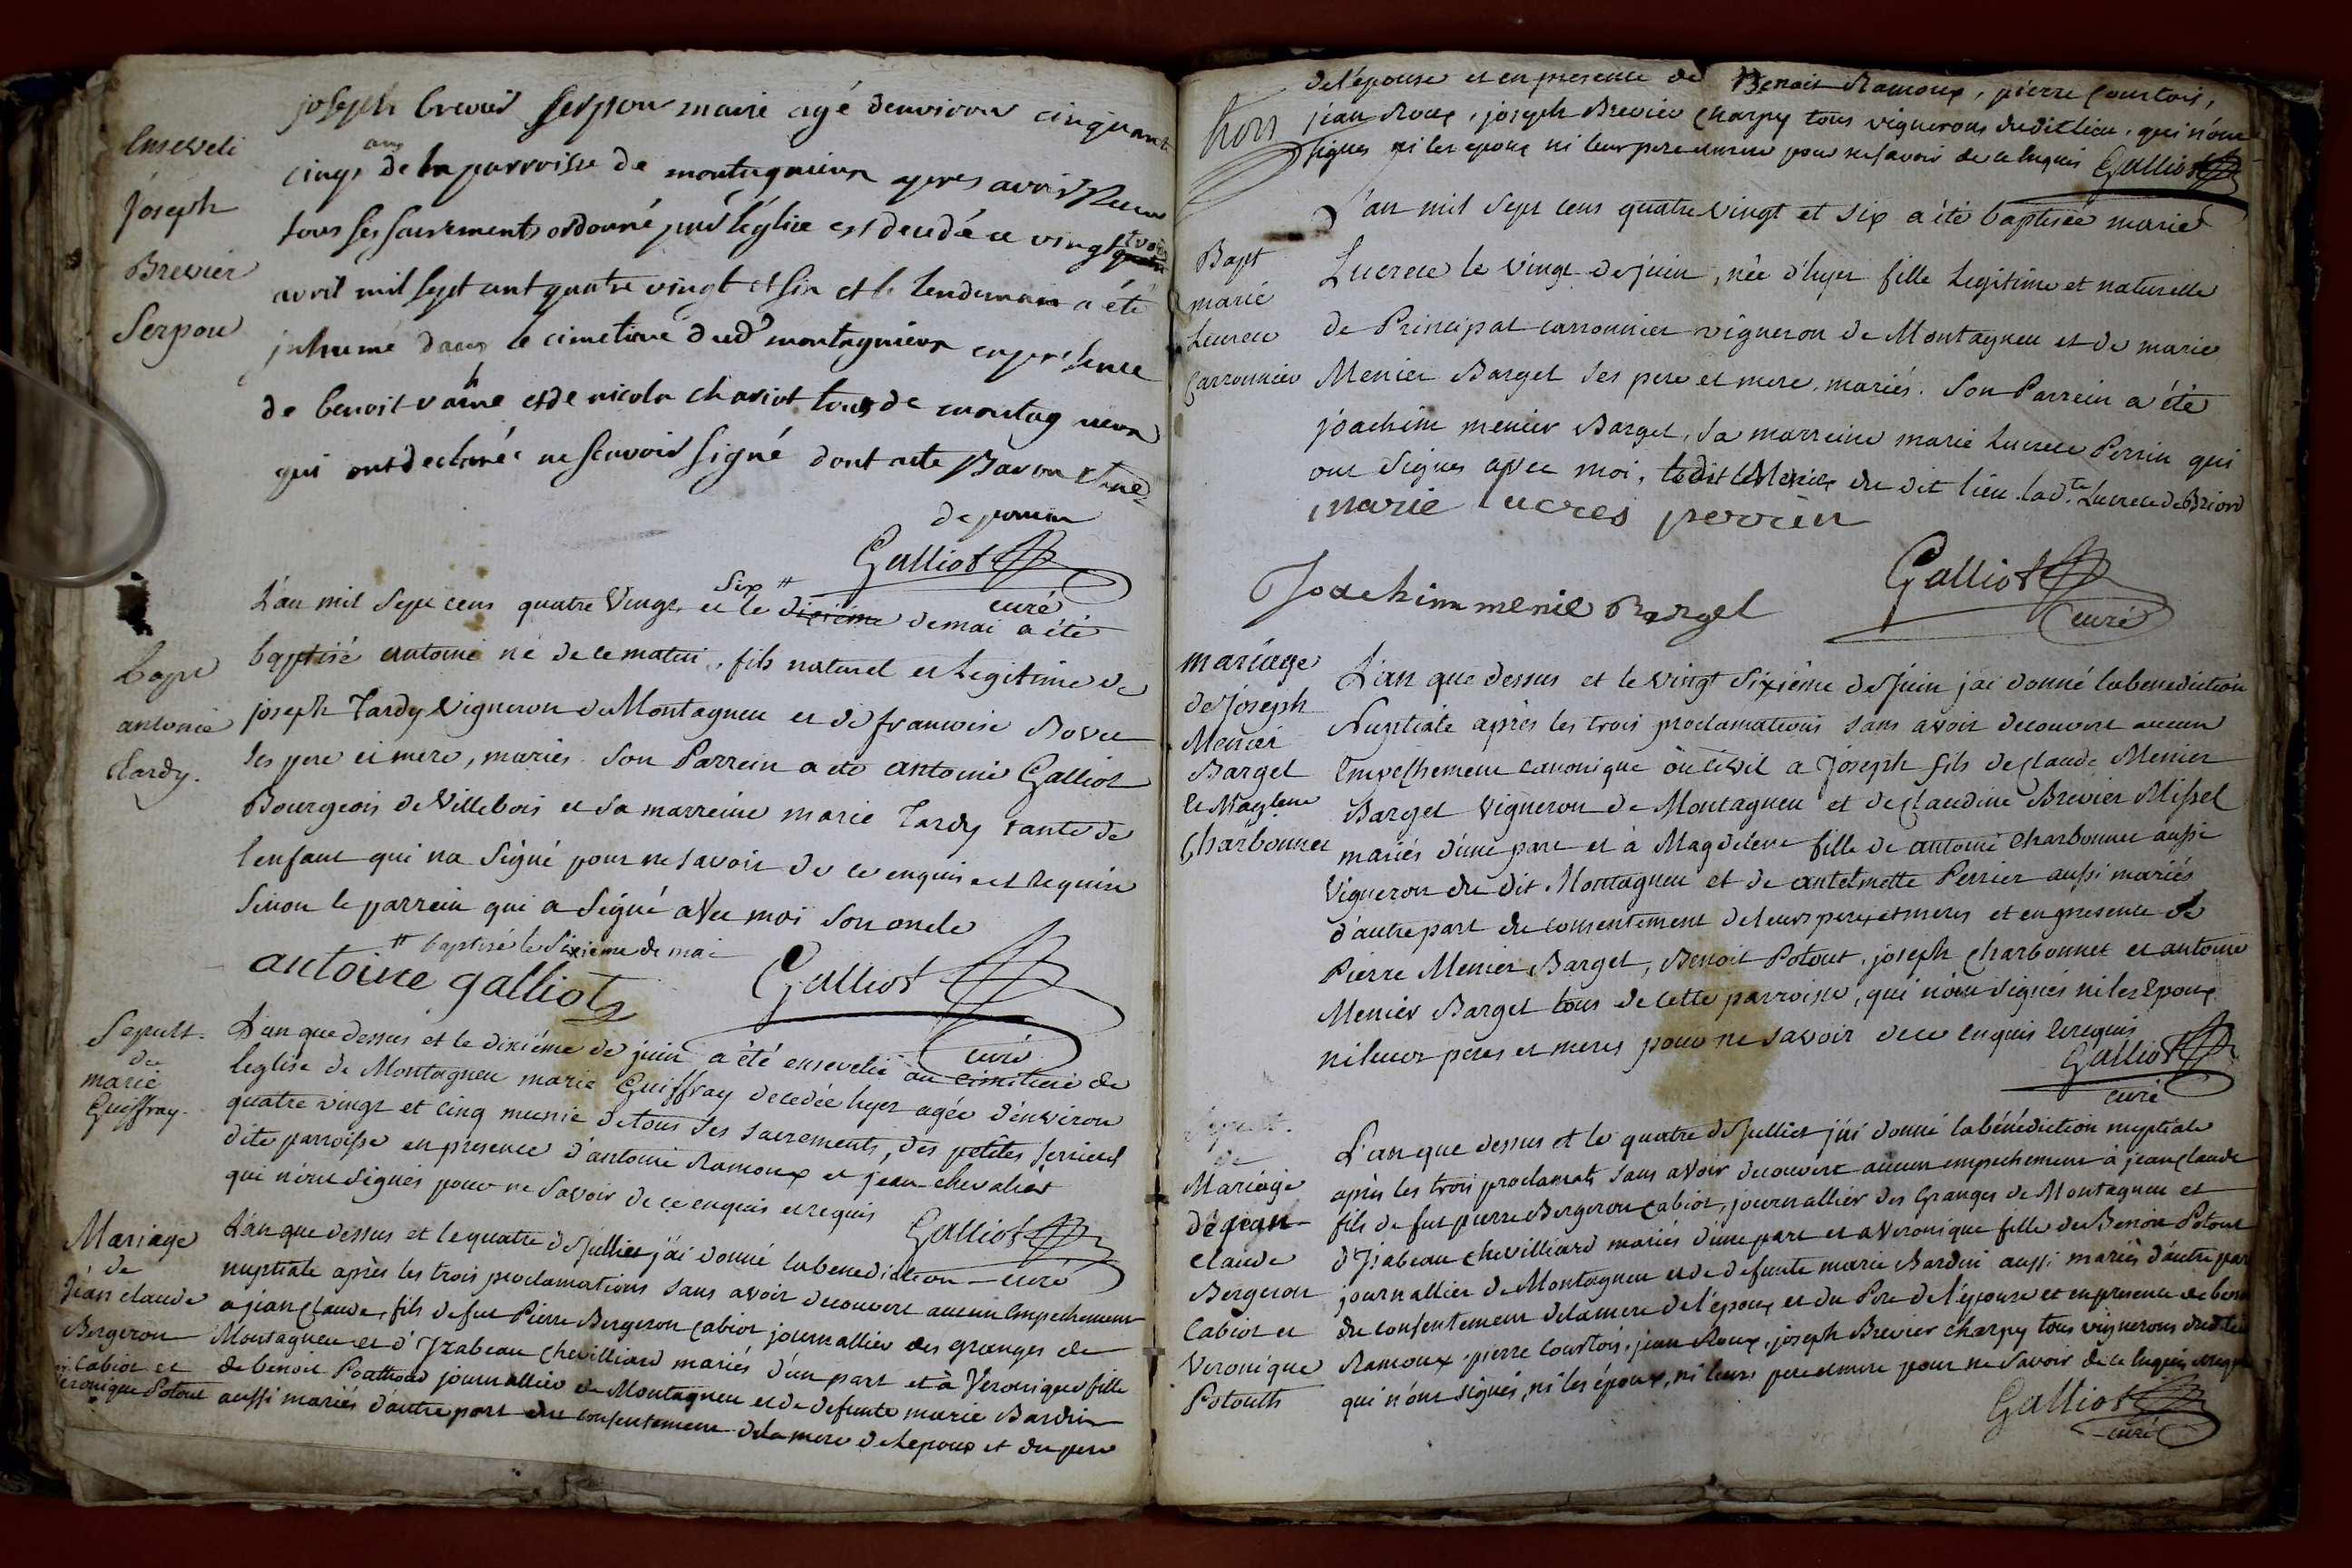 Enseveli
Joseph
Brevier
Serpou
joseph brevier Serpou marié agé denviron cinquante
cinqs ans de la parroisse de montagnieux apres avoir recu
tous ses sacrements ordonné pard l'église est decedé ce vingt trois
avril mil sept cent quatre vingt et six et le lendemain a été
inhumé dans le cimetiere dud montagnieux en presence
de benoit vahé et de nicola chariot tous de montagnieux
qui ont declaré ne scavoir signé dont acte
Galliot
curé
Bapt
antoine
Tardy.
L'an mil sept cens quatre vingt six # et le dixième de mai a été
baptisé antoine né de ce matin, fils naturel et legitime de
joseph Tardy vigneron de Montagneu et de francoise Bovet
ses pere et mere, mariés. Son Parrein a été antoine Galliot
Bourgeois de Villebois et sa marreine marie Tardy tante de
lenfant qui na signé pour ne savoir de ce enquise et requise
sinon le parrein qui a signé avec moi son oncle
# baptisé le sixieme de mai
antoine galliot Galliot
curé
Sepult.
de
marie
Guiffray.
L'an que dessus et le dixiéme de juin a été ensevelie au cimitiere de
leglise de Montagneu marie Guiffray decedée hyer agée d'environ
quatre vingt et cinq munie de tous ses sacrements, des petites Serrieres
dite parroisse en presence d'antoine Ramoux et jean chevalier
qui n'ont signés pour ne savoir de ce enquis et requis
Galliot
curé
Mariage
de
Jean claude
Bergeron
Cabiot et
Veronique Potout
L'an que dessus et le quatre de Julliet j'ai donné la benediction
nuptiale après les trois proclamations sans avoir decouvert aucun empechement
a jean Claude, fils de fut Pierre Bergeron Cabiot journallier des granges de
Montagneu et d'Izabeau Chevilliard mariés d'un part et à Veronique fille
de benoit journallier de Montagneu et de defunte marie Bardin
aussi mariés d'autre part du consentement de la mere de l'epoux et du pere
hors
de l'épouse et en presence de Benoit Ramoux, pierre Courtois,
jean Roux, joseph Brevier Charpy tous vignerons dudit lieu, qui n'ont
signés ni les epoux ni leur pere et mere pour ne savoir de ce enquis Galliot
Bapt
marie
Lucrece
Carronnier
L'an mil sept cens quatre vingt et six a été baptisée marie
Lucrece le vingt de juin, née d'hyer fille legitime et naturelle
de Principat carronnier vigneron de Montagneu et de marie
Menier Barget ses pere et mere, mariés. Son Parrein a été
joachim menier Barget, sa marreine marie Lucrece Perrin qui
ont signés avec moi, ledit Menier du dit lieu. lad.te Lucrece de Briord
marie lucres perrin
Joachim menie Bargel
Galliot
curé
mariage
de Joseph
Menier
Barget
et Magdlene
Charbonnet
L'an que dessus et le vingt sixième de Juin jai donné la benediction
Nuptiale après les trois proclamations sans avoir decouvert aucun
Empeschement canonique où civil a Joseph fils de claude Menier
Barget vigneron de Montagneu et de claudine Brevier Missel
mariés d'une part et à Magdelene fille de antoine Charbonnet aussi
Vigneron du dit Montagneu et de antelmette Perrier aussi mariés
d'autre part du consentement de leurs peres et meres et en presence de
Pierre Menier Barget, Benoit Potout, joseph Charbonnet et antoine
Menier Barget tous de cette parroisse, qui n'ont signés ni les Epoux
ni leurs peres et meres pour ne savoir de ce enquis et requis
Galliot
curé
Sepult.
de
Mariage
de jean
claude
Bergeron
Cabiot et
Veronique
Potouth
L'an que dessus et le quatre de Julliet j'ai donné la bénédiction nuptiale
après les trois proclamats sans avoir decouvert aucun empechement à jean Claude
fils de fut pierre Bergeron Cabiot, journallier des Granges de Montagneu et
d'Izabeau Chevilliard mariés d'une part et a Veronique fille de Benoit Potout
journallier de Montagneu et de defunte marie Bardin aussi mariés d'autre part
du consentement de la mere de l'époux et du Pere de l'épouse et en presence de benoit
Ramoux, pierre Courtois, jean Roux, joseph Brevier Charpy tous vignerons dudit lieu
qui n'ont signés, ni les époux, ni leurs pere et mere pour ne savoir de ce enquis
Galliot
curé